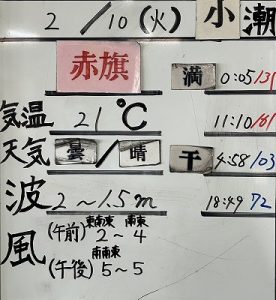 2/10(火) 小潮
赤旗 満 0:05/131
11:10/161
気温 21℃
天気 曇/晴 干 4:58/103
波 2~1.5m 18:49 72
風 (午前) 東南東 2~4 南東
(午後) 南南東 5~5